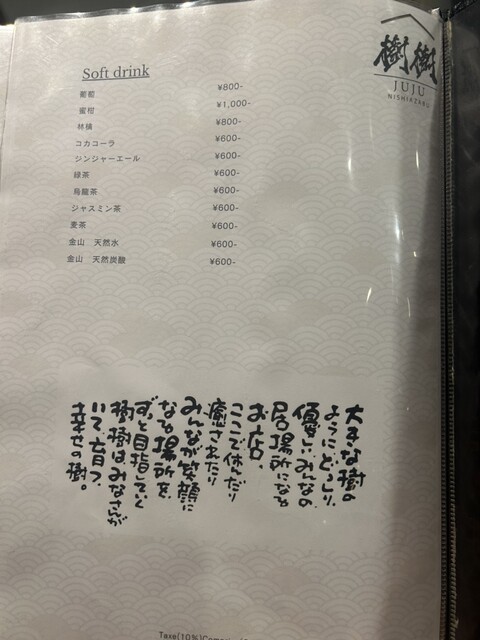 樹樹
JUJU
NISHIAZABU
Soft drink
葡萄 ¥800-
蜜柑 ¥1,000-
林檎 ¥800-
コカコーラ ¥600-
ジンジャーエール ¥600-
緑茶 ¥600-
烏龍茶 ¥600-
ジャスミン茶 ¥600-
麦茶 ¥600-
金山 天然水 ¥600-
金山 天然炭酸 ¥600-
大きな樹の
ようにどっしり、
優しいみんなの
居場所になる
お店、
ここで休んだり
癒されたり
みんなが笑顔に
なる場所を
ずっと目指していく
樹樹は、みなさんが
いて、育つ、
幸せの樹。
Taxe(10%)